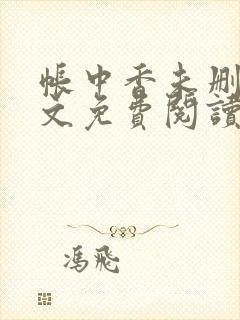 帳中香未刪
文免費閱讀
馮飛